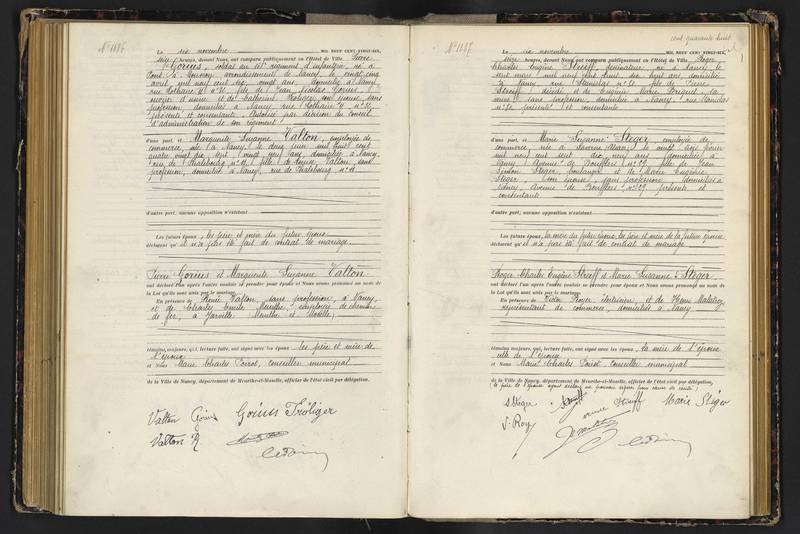 N° 1186
Le six novembre MIL NEUF CENT VINGT-SIX,
heures, devant Nous, ont comparu publiquement en l'Hôtel de Ville Pierre
Gorius, soldat au régiment d'infanterie, né à
Pont à Mousson arrondissement de Nancy, le vingt cinq
avril mil neuf cent six, vingt ans, domicilié à Nancy
rue Lothaire II n° 32, fils de Jean Nicolas Gorius,
et de Catherine son épouse, sans
profession, domiciliés à Nancy rue Lothaire II n° 32,
présents et consentants. Autorisé par décision du Conseil
d'administration de son régiment
d'une part, et Marguerite Suzanne Valton, employée de
commerce, née à Nancy, le deux juin mil huit cent
quatre vingt dix sept, vingt neuf ans, domiciliée à Nancy,
rue de Phalsbourg n° 11, fille de Louise Valton, sans
profession, domiciliée à Nancy, rue de Phalsbourg n° 11
d'autre part; aucune opposition n'existant
Les futurs époux, les père et mère du futur époux
déclarent qu'il n'a pas été fait de contrat de mariage.
Pierre Gorius et Marguerite Suzanne Valton
ont déclaré l'un après l'autre vouloir se prendre pour époux et Nous avons prononcé au nom de
la Loi qu'ils sont unis par le mariage.
En présence de Renée Valton, sans profession, à Nancy,
et de Charles Emile employé de chemin
de fer, à Jarville (Meurthe et Moselle),
témoins majeurs, qui, lecture faite, ont signé avec les époux, les père et mère de
l'époux
et Nous Marie Charles Poirot, conseiller municipal
de la Ville de Nancy, département de Meurthe-et-Moselle, officier de l'état civil par délégation.
Valton Gorius Gorius Fröliger
Valton R
cent quarante huit
N° 1187
Le six novembre MIL NEUF CENT VINGT-SIX,
heures, devant Nous, ont comparu publiquement en l'Hôtel de Ville Roger
Charles Eugène Streiff, dessinateur, né à Nancy, le
sept mars mil neuf cent huit, dix huit ans, domicilié
à Nancy rue Stanislas n° fils de Pierre
Streiff, décédé et de Eugénie Marie
sans profession, domiciliée à Nancy, rue Stanislas
présente et consentante
d'une part, et Marie Suzanne Steger, employée de
commerce, née à Saverne (Alsace), le vingt trois février
mil neuf cent sept, dix neuf ans, domiciliée à
Nancy, Avenue de Boufflers n° 29, fille de Jean
Simon Steger, boulanger et de Marie Eugénie
Steger, son épouse, sans profession, domiciliés à
Nancy, avenue de Boufflers n° 29, présents et
consentants
d'autre part; aucune opposition n'existant
Les futurs époux, la mère du futur époux, les père et mère de la future épouse
déclarent qu'il n'a pas été fait de contrat de mariage
Roger Charles Eugène Streiff et Marie Suzanne Steger
ont déclaré l'un après l'autre vouloir se prendre pour époux et Nous avons prononcé au nom de
la Loi qu'ils sont unis par le mariage.
En présence de Victor et de Henri
représentant de commerce, domiciliés à Nancy
témoins majeurs, qui, lecture faite, ont signé avec les époux, la mère de l'époux
celle de l'épouse
et Nous Marie Charles Poirot, conseiller municipal
de la Ville de Nancy, département de Meurthe-et-Moselle, officier de l'état civil par délégation,
S Steger Streiff Marie Stéger
V. Roy